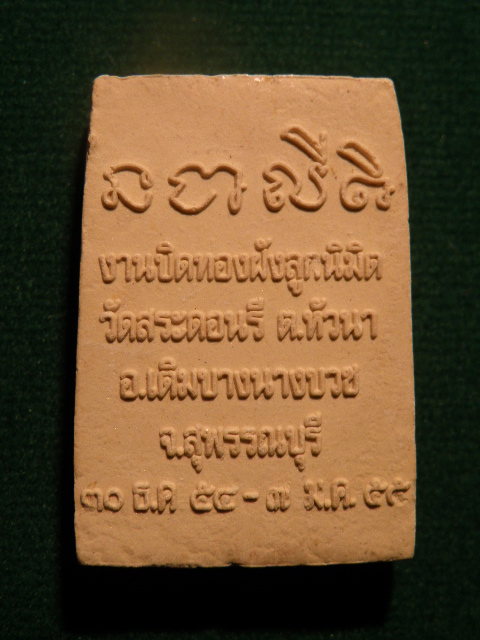 งานปิดทองฝังลูกนิมิต
วัดสระดอนรี ต.หัวนา
อ.เดิมบางนางบวช
จ.สุพรรณบุรี
๓๐ ธ.ค ๕๔ - ๗ ม.ค. ๕๕